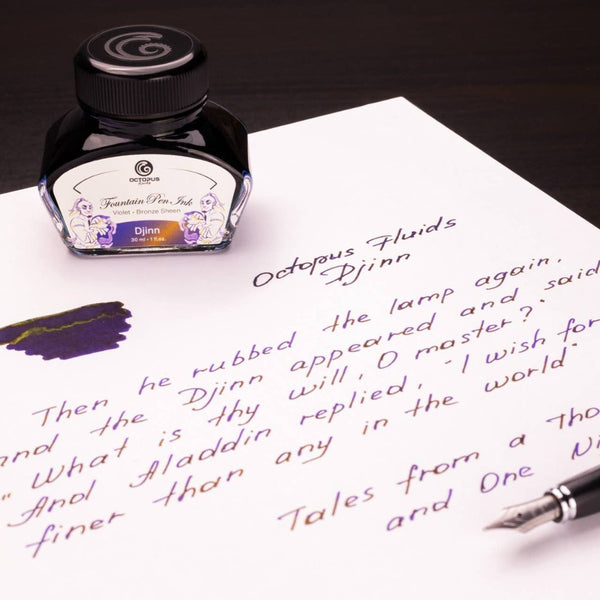 OCTOPUS
fluids
Fountain Pen Ink
Violet - Bronze Sheen
Djinn
30 ml - 1 fl.oz.
Octopus Fluids
Djinn
Then he rubbed the lamp again,
and the Djinn appeared and said
"What is thy will, O master?"
And Aladdin replied, "I wish for
finer than any in the world"
Tales from a Tho
and One Ni